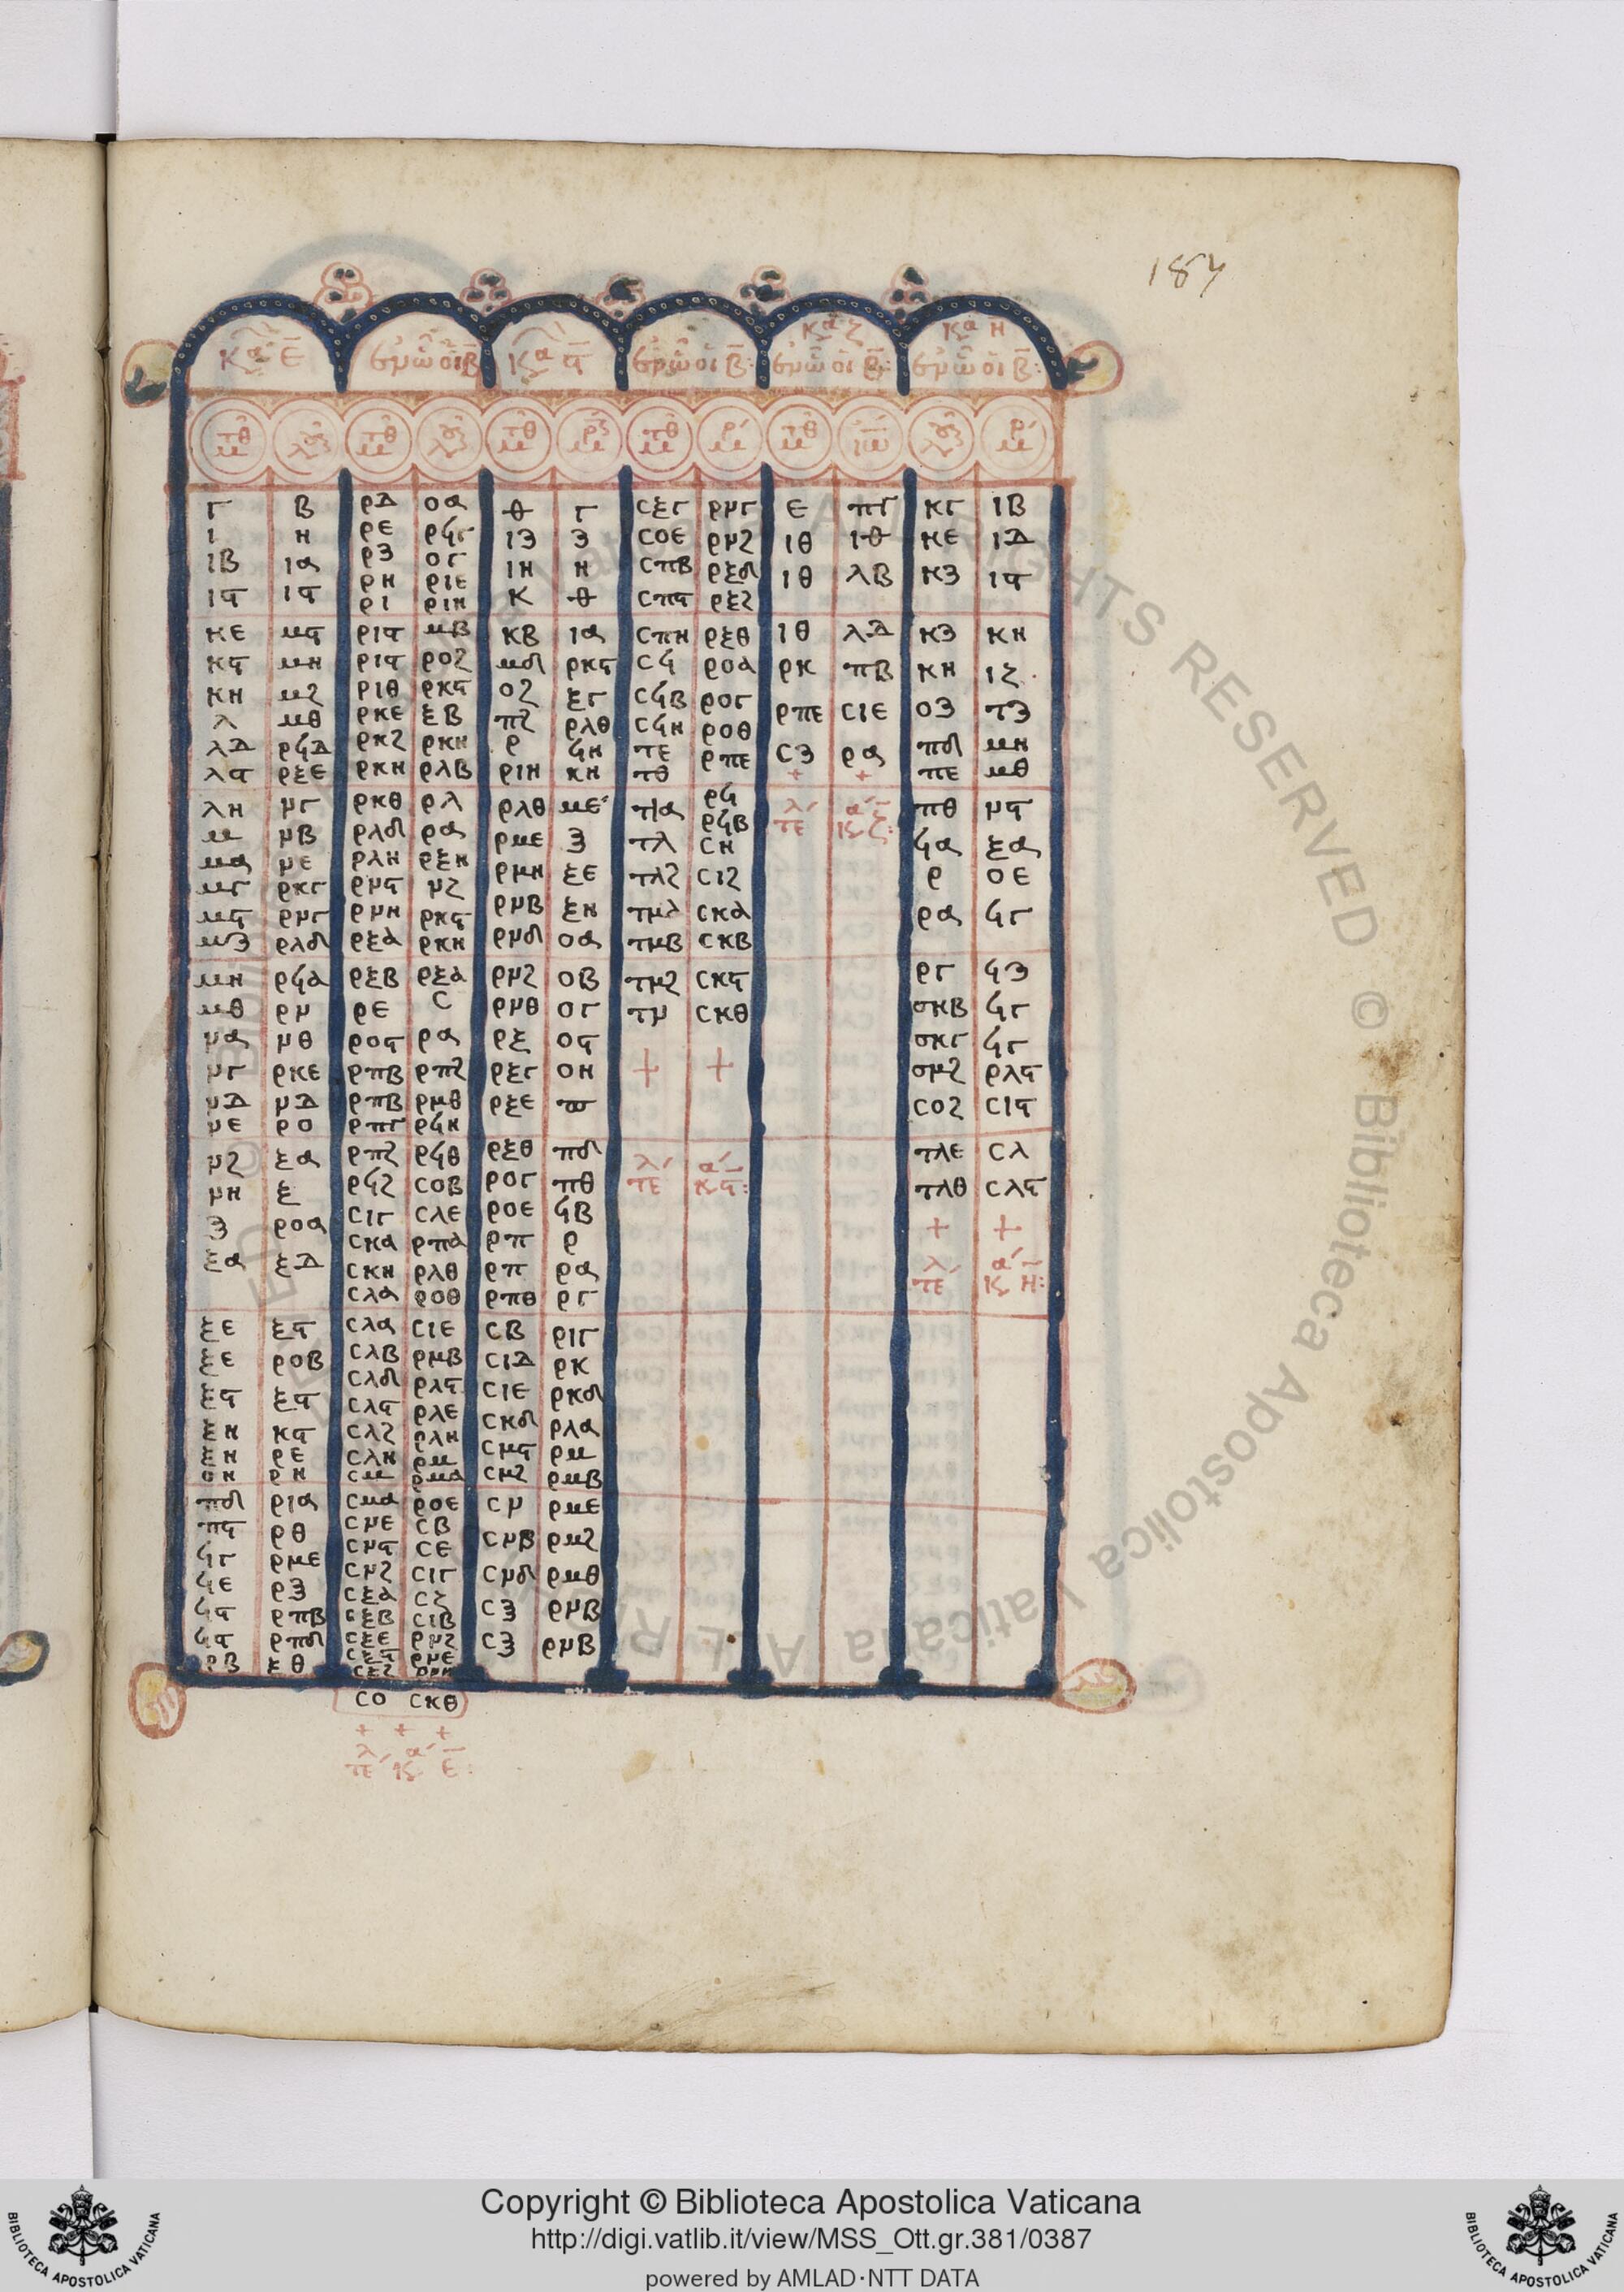 187
κα ε̅ ἐν ᾧ οἱ β κα ϛ̅ ἐν ᾧ οἱ β: κα ζ ἐν ᾧ οἱ β: κα η ἐν ᾧ οἱ β:
μτθ λου μτθ λου μτθ μρ μτθ μρ μτθ ιω λου μρ
γ β ρδ οα θ γ σξγ ρνγ ε πγ κγ ιβ
ι η ρε ρϟγ ιζ ζ σοε ρνϛ ιθ ιθ κε ιδ
ιβ ια ρζ ογ ιη η σπβ ρξδ ιθ λβ κζ ιϛ
ιϛ ιϛ ρη ριε κ θ σπϛ ρξϛ
ρι ριη
κε μϛ ριϛ μβ κβ ια σπη ρξθ ιθ λδ κζ κη
κϛ μη ριϛ ροζ μδ ρκϛ σϟ ροα ρκ πβ κη ιζ
κη μζ ριθ ρκϛ οζ ξγ σϟβ ρογ ρπε σιε οζ τζ
λ μθ ρκε ξβ πζ ρλθ σϟη ροθ σζ ρα πδ μη
λδ ρϟδ ρκζ ρκη ρ ϟη τε ρπε + + πε μθ
λϛ ρξε ρκη ρλβ ριη κη τθ
λη νγ ρκθ ρλ ρλθ με τια ρϟ τελ κα ζ: πθ νϛ
μ νβ ρλδ ρα ρμε ζ τλ ρϟβ ϟα ξα
μα νε ρλη ρξη ρμη ξε τλζ ση ρ οε
μγ ρκγ ρνϛ νζ ρνβ ξη τμα σιζ ρα ϟγ
μϛ ρνγ ρνη ρκϛ ρνδ οα τμβ σκα
μζ ρλδ ρξα ρκη σκβ
μη ρϟα ρξβ ρξα ρνζ οβ τμζ σκϛ ργ ϟζ
μθ ρν ρε σ ρνθ ογ τν σκθ σκβ ϟγ
να νθ ροϛ ρα ρξ οϛ + + σκγ ϟγ
νγ ρκε ρπβ ρπζ ρξγ οη σνζ ρλϛ
νδ νδ ρπβ ρμθ ρξε π σοζ σιϛ
νε ρο ρπγ ρϟη
νζ ξα ρπζ ρϟθ ρξθ πδ τελ κα ϛ: τλε σλ
νη ξ ρϟζ σοβ ρογ πθ τλθ σλϛ
ζ ροα σιγ σλε ροε ϟβ + +
ξα ξδ σκα ρπα ρπ ρ τελ κα η:
σκη ρλθ ρπ ρα
σλα ροθ ρπθ ργ
ξε ξϛ σλα σιε σβ ριγ
ξε ροβ σλβ ρμβ σιδ ρκ
ξϛ ξϛ σλδ ρλϛ σιε ρκδ
ξη κϛ σλϛ ρλε σκδ ρλα
ξη ρε σλζ ρλη σμϛ ρμ
οη ρη σλη ρμ σμζ ρμβ
σμ ρμα
πδ ρια σμα ροε σν ρμε
πϛ ρθ σνε σβ σνβ ρμζ
ϟγ ρμε σνϛ σε σνδ ρμθ
ϟε ρζ σνζ σιγ σξ ρνβ
ϟϛ ρπβ σξα σζ σξ ρνβ
ϟϛ ρπδ σξβ σιβ
ρβ ξθ σξε ρνζ
σξϛ ρνε
σο σκθ
+ + +
τελ κα ε:
Copyright © Biblioteca Apostolica Vaticana
http://digi.vatlib.it/view/MSS_Ott.gr.381/0387
powered by AMLAD·NTT DATA
BIBLIOTECA APOSTOLICA VATICANA
BIBLIOTECA APOSTOLICA VATICANA